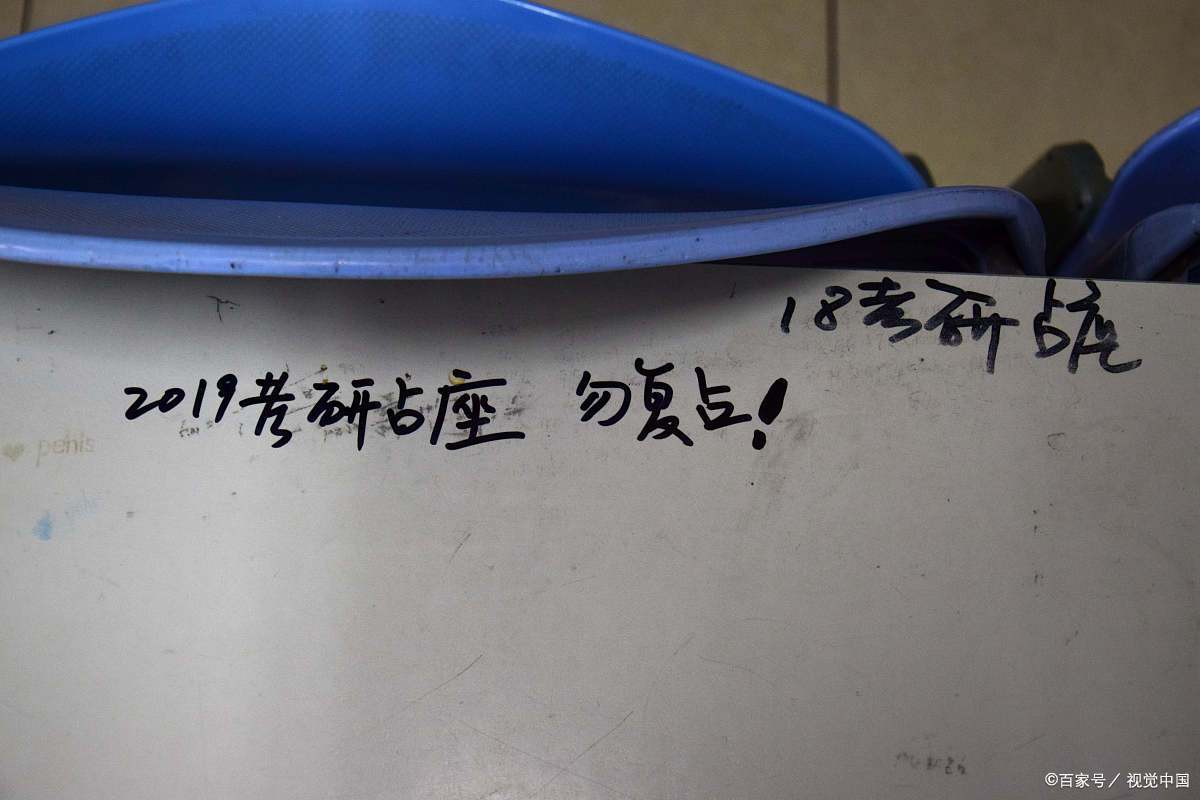 18考研占座
2019考研占座 勿复占!
penis
©百家号／视觉中国